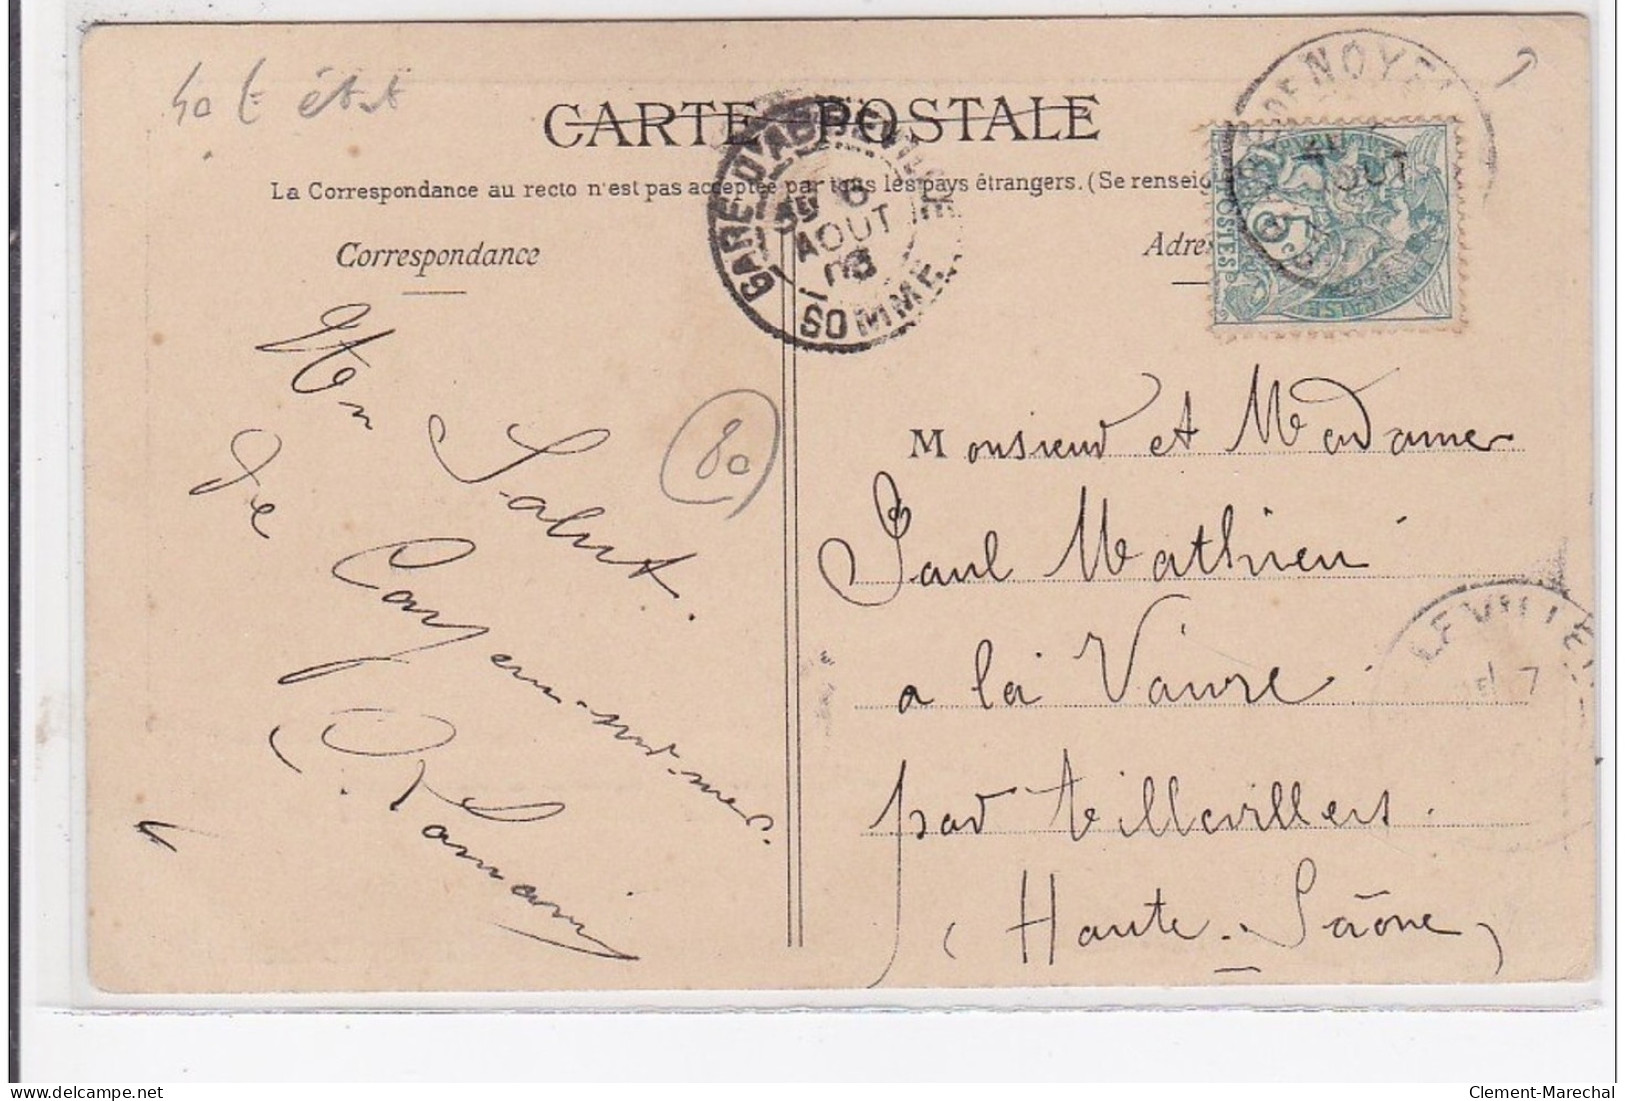 40 € état
CARTE POSTALE
La Correspondance au recto n'est pas acceptée par tous les pays étrangers. (Se renseig
Correspondance
Adre
GARE D'ABBEVILLE
6
AOUT
08
SOMME
NOYE
AOUT
POSTES
5
80
Un
Salut
de
Cayeux-sur-mer.
Monsieur et Madame
Paul Mathieu
a la Vaivre
par Villevillers.
(Haute-Saône)
7
Clement-Marechal